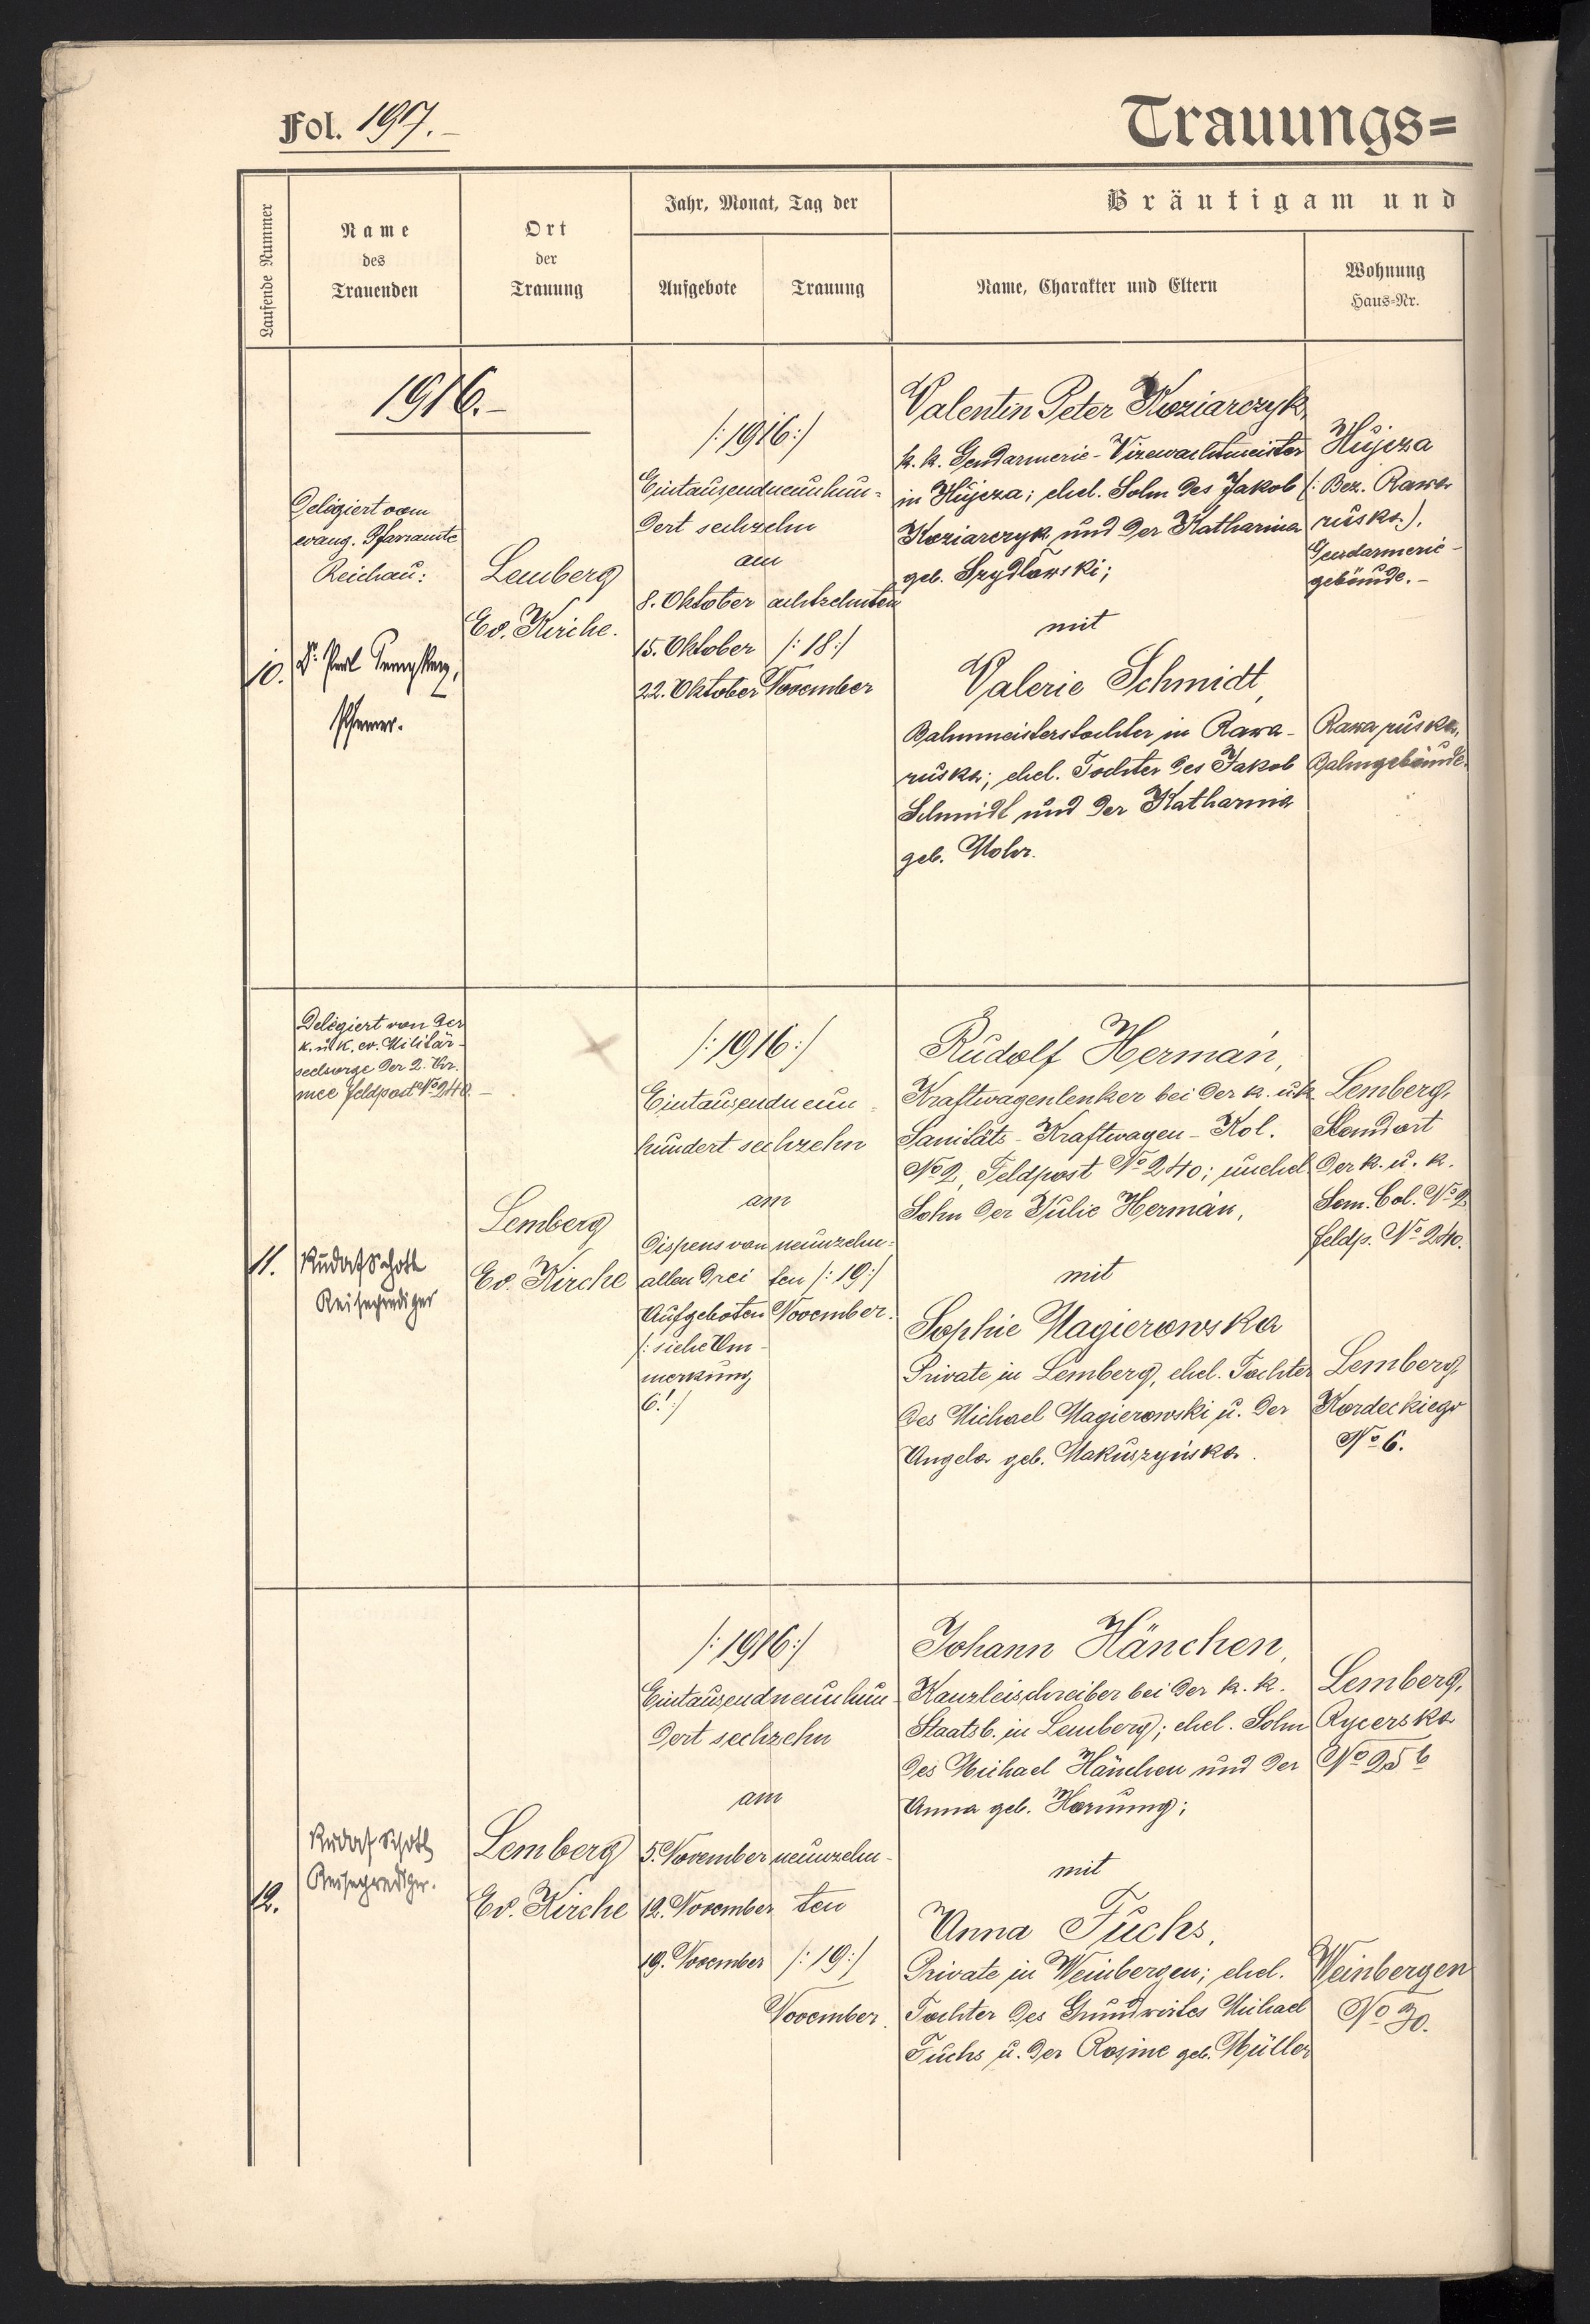 Fol. 197.-
Trauungs=
Laufende Nummer
Name
des
Trauenden
Ort
der
Trauung
Jahr, Monat, Tag der
Aufgebote
Trauung
Bräutigam und
Name, Charakter und Eltern
Wohnung
Haus-Nr.
1916.-
10.
Delegiert vom
evang. Pfarramte
Reichau:
Dr.
Pfarrer.
Lemberg
Ev. Kirche.
/: 1916 :/
Eintausendneunhun=
dert sechzehn
am
8. Oktober
15. Oktober
22. Oktober
achtzehnten
/: 18 :/
November
Valentin Peter Koziarczyk,
k. k. Gendarmerie-Vizewachtmeister
in Hujcza; ehel. Sohn des Jakob
Koziarczyk und der Katharina
geb. Szydłowski;
mit
Valerie Schmidt,
Bahnmeisterstochter in Rawa-
ruska; ehel. Tochter des Jakob
Schmidt und der Katharina
geb. Mohr.
Hujcza
(: Bez. Rawa
ruska),
Gendarmerie-
gebäude.-
Rawa ruska,
Bahngebäude.
11.
Delegiert von der
k. u. k. ev. Militär-
seelsorge der 2. Ar-
mee Feldpost No 240.-
Rudolf Schott
Reiseprediger
Lemberg
Ev. Kirche
/: 1916 :/
Eintausendneun=
hundert sechzehn
am
Dispens von
allen drei
Aufgeboten
/: siehe An-
merkung
6! :/
neunzehn=
ten /: 19 :/
November.
Rudolf Hermán,
Kraftwagenlenker bei der k. u. k.
Sanitäts-Kraftwagen-Kol.
No 2, Feldpost No 240; unehel.
Sohn der Julie Hermán,
mit
Sophie Magierowska
Private in Lemberg, ehel. Tochter
des Michael Magierowski u. der
Angela geb. Makuszyńska.
Lemberg,
Standort
der k. u. k.
San. Col. No 2
Feldp. No 240.
Lemberg,
Kordeckiego
No 6.
12.
Rudolf Schott
Reiseprediger.
Lemberg
Ev. Kirche
/: 1916 :/
Eintausendneunhun-
dert sechzehn
am
5. November
12. November
19. November
neunzehn-
ten
/: 19 :/
November.
Johann Hänchen,
Kanzleischreiber bei der k. k.
Staatsb. in Lemberg; ehel. Sohn
des Michael Hänchen und der
Anna geb. Hornung;
mit
Anna Fuchs,
Private in Weinbergen; ehel.
Tochter des Grundwirtes Michael
Fuchs u. der Rosine geb. Müller
Lemberg,
Rycerska
No 25 b
Weinbergen
No 30.